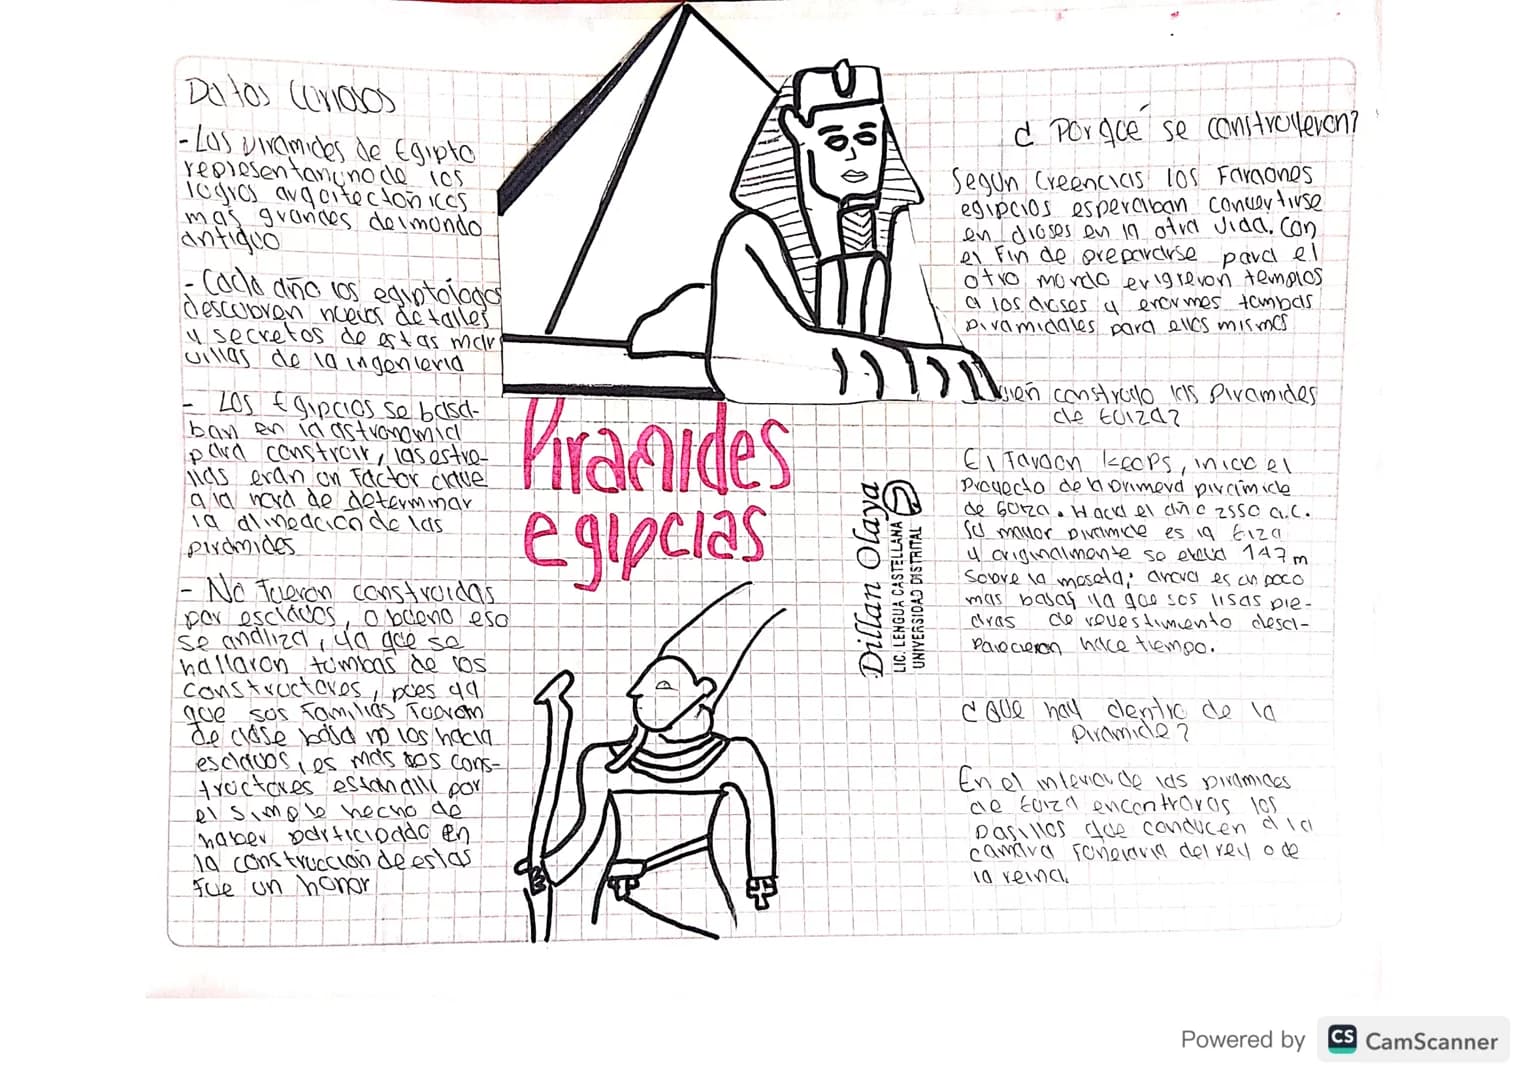 Datos curiosos
- Las piramides de Egipto
representan uno de los
logros arquitectónicos
mas grandes del mundo
antiguo
- Cada año los egiptologos
descubren nuevos detalles
y secretos de estas mar
villas de la ingenieria
- Los Egipcios se basa-
ban en la astronomia
para construir, las estre-
llas eran un factor clave
a la hora de determinar
la alineación de las
pirámides
- No fueron construidas
por esclavos, o bueno eso
se analiza, ya que se
hallaron tumbas de los
constructores, pues ya
que sus familias fueron
de clase baja no los hacia
esclavos, es mas los cons-
tructores estan alli por
el simple hecho de
haber participado en
la construcción de estas
fue un honor
Piramides
egipcias
Dillan Olaya
LIC. LENGUA CASTELLANA
UNIVERSIDAD DISTRITAL
¿ Por qué se construyeron?
Según creencias los Faraones
egipcios esperaban convertirse
en dioses en la otra vida. Con
el fin de prepararse para el
otro mundo erigieron templos
a los dioses y enormes tumbas
piramidales para ellos mismos
construyo las Piramides
de Guiza?
El faraon Keops, inicio el
proyecto de la primera piramide
de Guiza. Hacia el año 2550 a.C.
Su mayor piramide es la Giza
y originalmente se eleva 147 m
sobre la meseta; ahora es un poco
mas bajas ya que sus lisas pie-
dras de revestimiento desa-
parecieron hace tiempo.
¿ Que hay dentro de la
Piramide?
En el interior de las piramides
de Guiza encontraras los
pasillos que conducen a la
camara funeraria del rey o de
la reina.
Powered by CS CamScanner